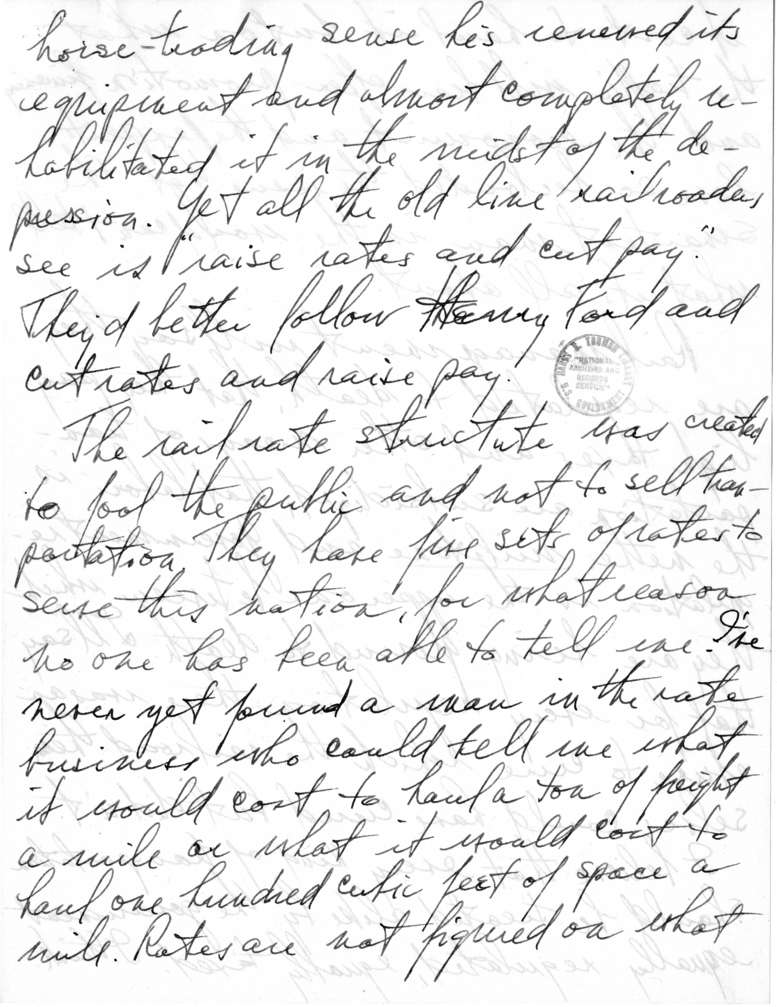 horse-trading sense he's renewed its
equipment and almost completely re-
habilitated it in the midst of the de-
pression. Yet all the old line railroaders
see is "raise rates and cut pay."
They'd better follow Henry Ford and
cut rates and raise pay.
HARRY S. TRUMAN LIBRARY
"NATIONAL
ARCHIVES AND
RECORDS
SERVICE"
U.S. GOVERNMENT
The rail rate structure was created
to fool the public and not to sell tran-
portation. They have five sets of rates to
serve this nation, for what reason
no one has been able to tell me. I've
never yet found a man in the rate
business who could tell me what
it would cost to haul a ton of freight
a mile or what it would cost to
haul one hundred cubic feet of space a
mile. Rates are not figured on what